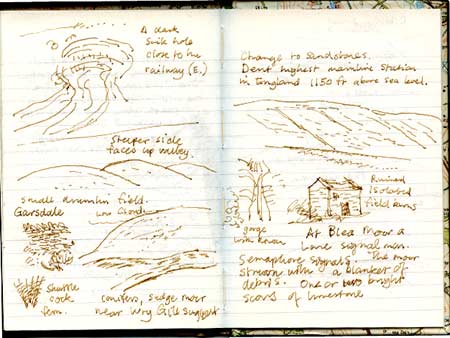 A dark
sink hole
close to the
railway (E.)
Steeper side
faces up valley.
small drumlin field.
Garsdale
Shuttle
cock
fern.
conifers, sedge moor
near
Change to Sandstones.
Dent highest mainline station
in England 1150 ft above sea level.
gorge
Ruined
isolated
field barns
At Blea Moor a
lone signal man.
Semaphore signals. The moor
strewn with a blanket of
debris. One or two bright
scars of limestone